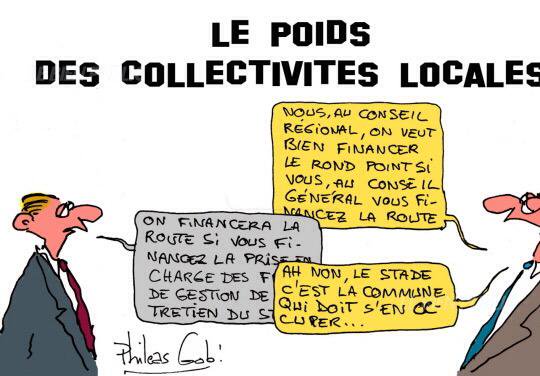 LE POIDS
DES COLLECTIVITES LOCALES
NOUS, AU CONSEIL
RÉGIONAL, ON VEUT
BIEN FINANCER
LE ROND POINT SI
VOUS, AU CONSEIL
GÉNÉRAL VOUS FI-
NANCEZ LA ROUTE
ON FINANCERA LA
ROUTE SI VOUS FI-
NANCEZ LA PRISE EN
CHARGE DES
DE GESTION DE
TRETIEN DU
AH NON, LE STADE
C'EST LA COMMUNE
QUI DOIT S'EN OC-
CUPER...
Phileas Gob'